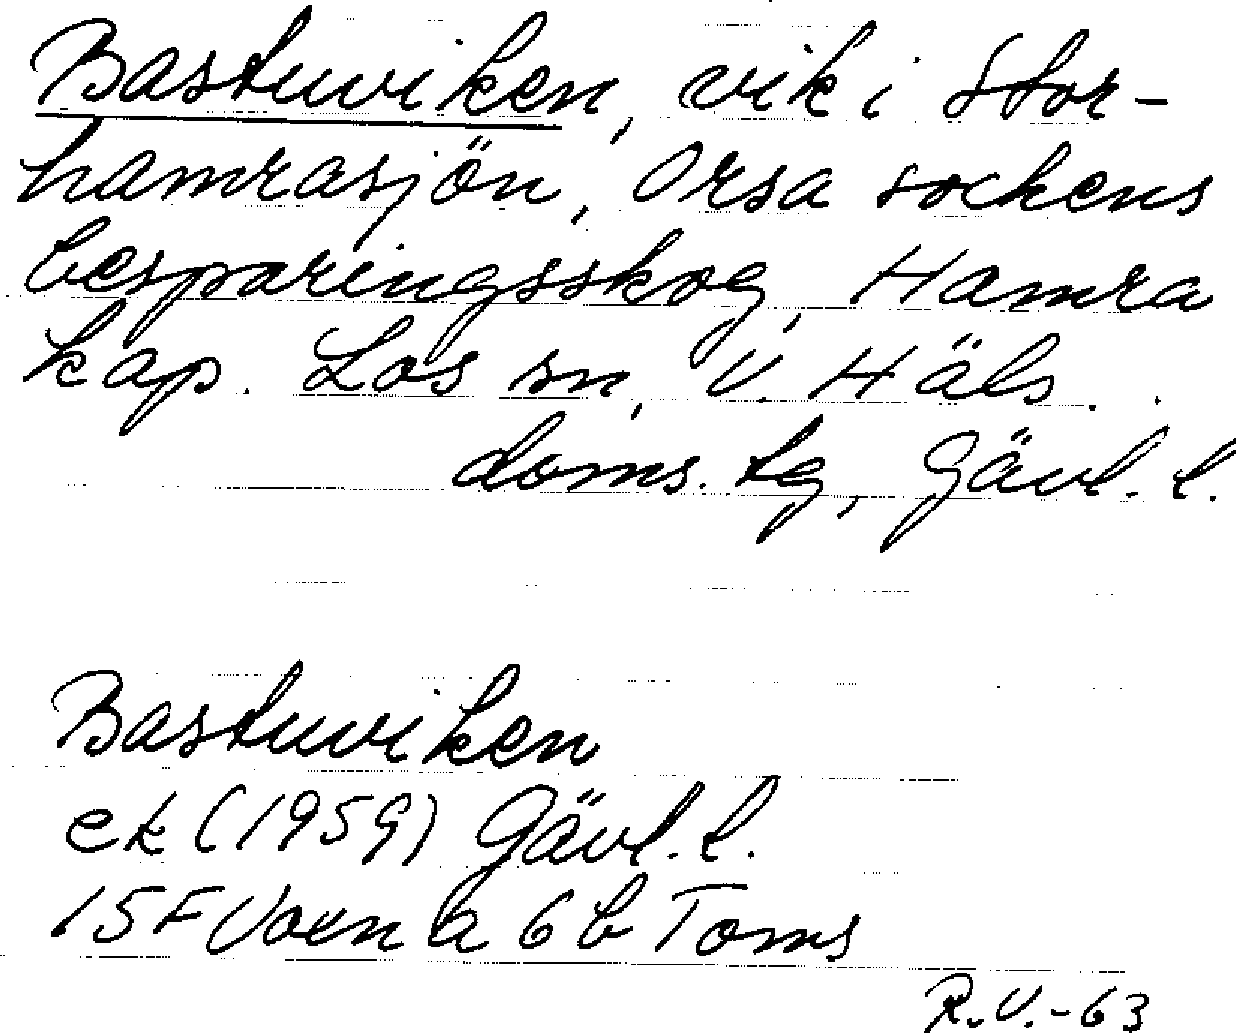 Bastuviken, vik i Stor-
hamrasjön, Orsa sockens
besparingsskog, Hamra
kap. Los sn, V. Häls.
doms. tg, Gävl. l.
Bastuviken
ek (1959) Gävl. l.
15F Voxna 6b Toms
R.V.-63